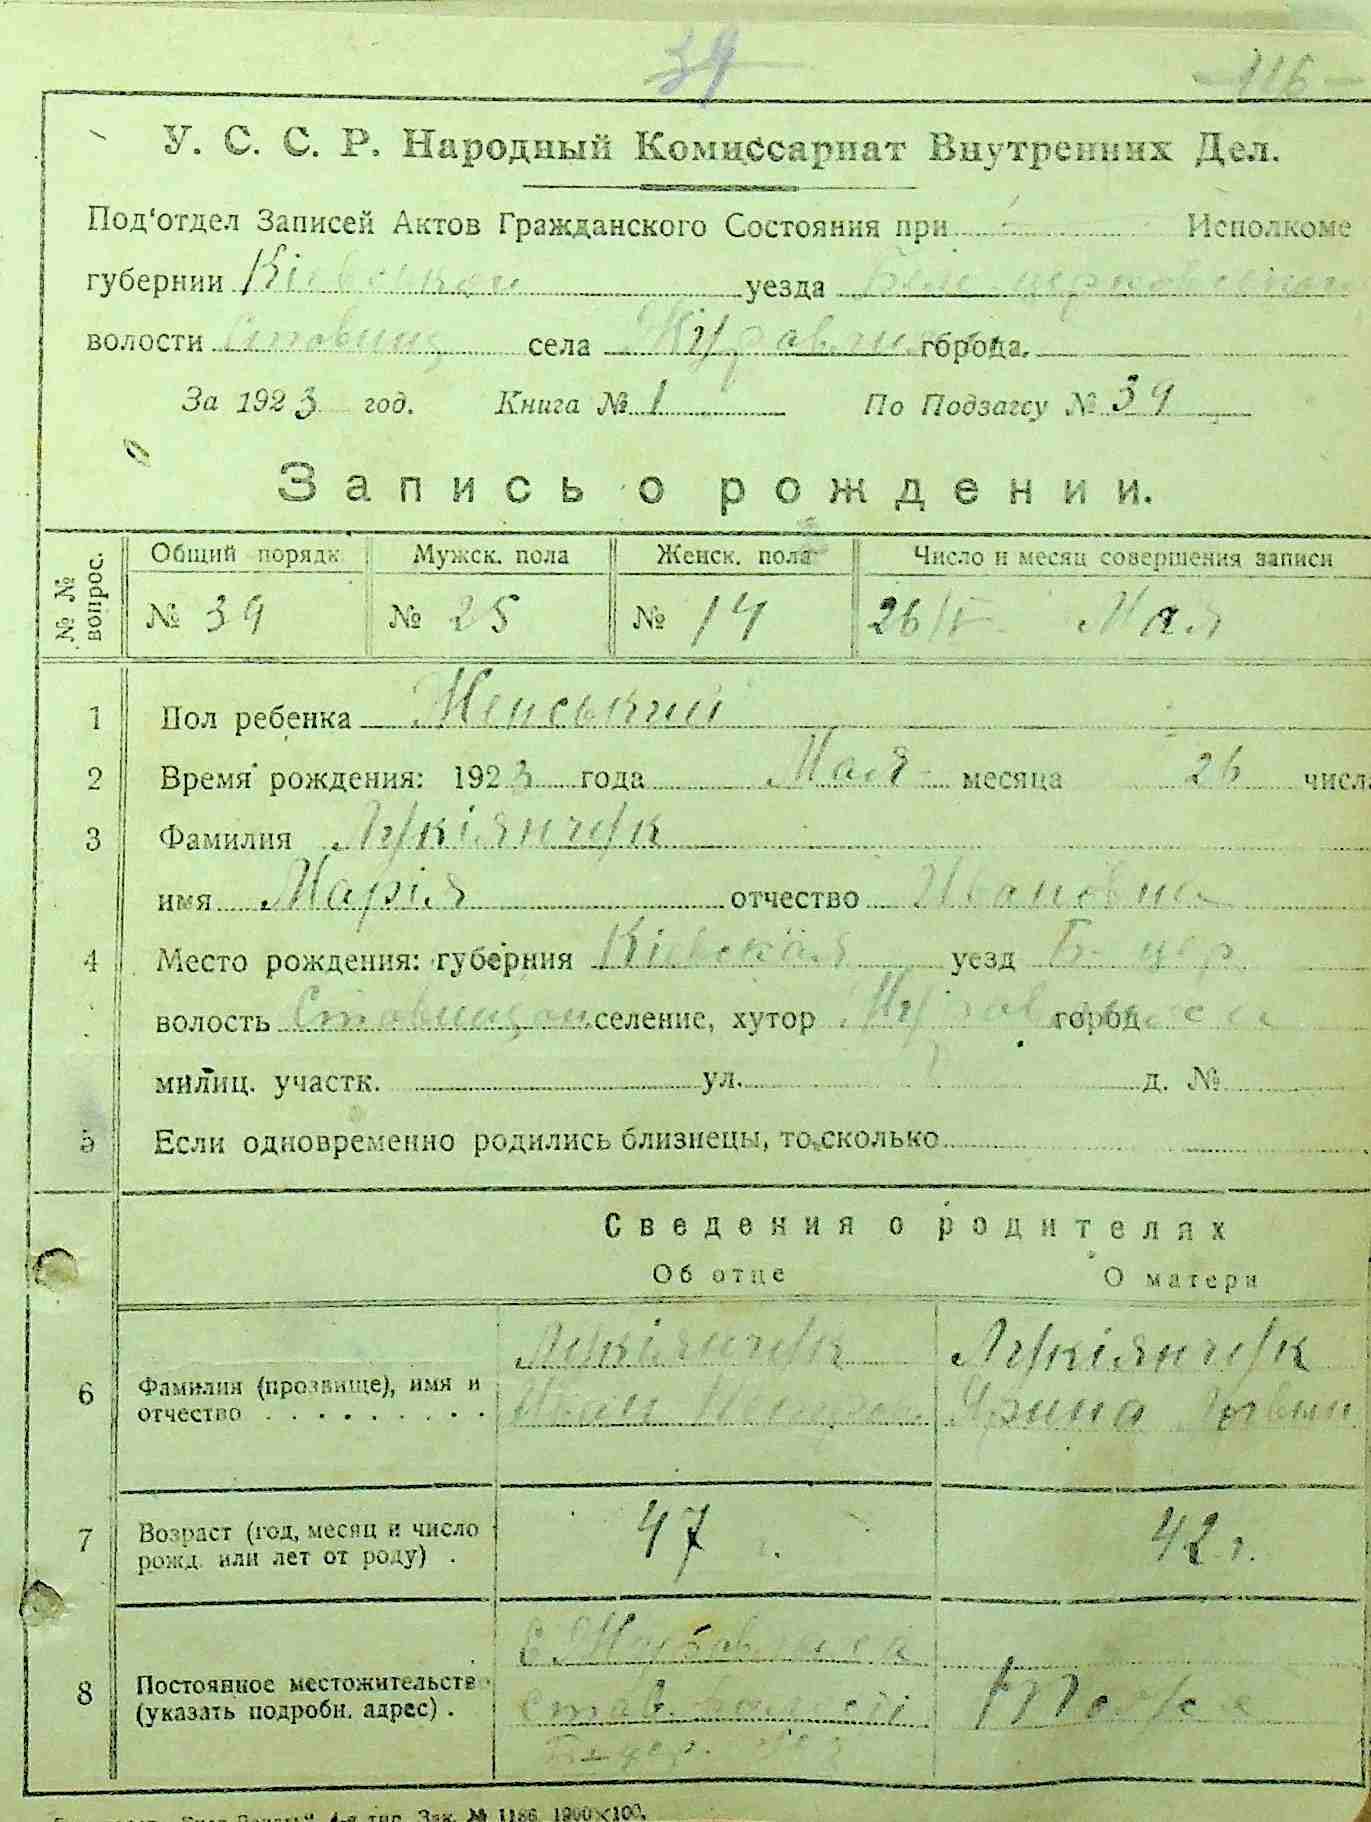 39
116
У. С. С. Р. Народный Комиссариат Внутренних Дел.
Под'отдел Записей Актов Гражданского Состояния при Исполкоме
губернии Київської уезда Біло-церковського
волости Ставищ села Журавлиха города
За 1923 год. Книга № 1 По Подзагсу № 39
Запись о рождении.
№ № вопрос. Общий порядк. Мужск. пола Женск. пола Число и месяц совершения записи
№ 39 № 25 № 14 26/V Мая
1 Пол ребенка Женський
2 Время рождения: 1923 года Мая месяца 26 числ
3 Фамилия Лукіянчук
имя Марія отчество Ивановна
4 Место рождения: губерния Кіевская уезд Б-цер
волость селение, хутор город
милиц. участк. ул. д. №
5 Если одновременно родились близнецы, то сколько
Сведения о родителях
Об отце О матери
Лукіянчук Лукіянчук
6 Фамилия (прозвище), имя и отчество Иван Ярина
7 Возраст (год, месяц и число рожд. или лет от роду) 47 г. 42 г.
с. Журавлиха
8 Постоянное местожительств (указать подробн. адрес) Став. Тоже
Б-цер.
4-я тип. Зак. № 1186. 1900×100.